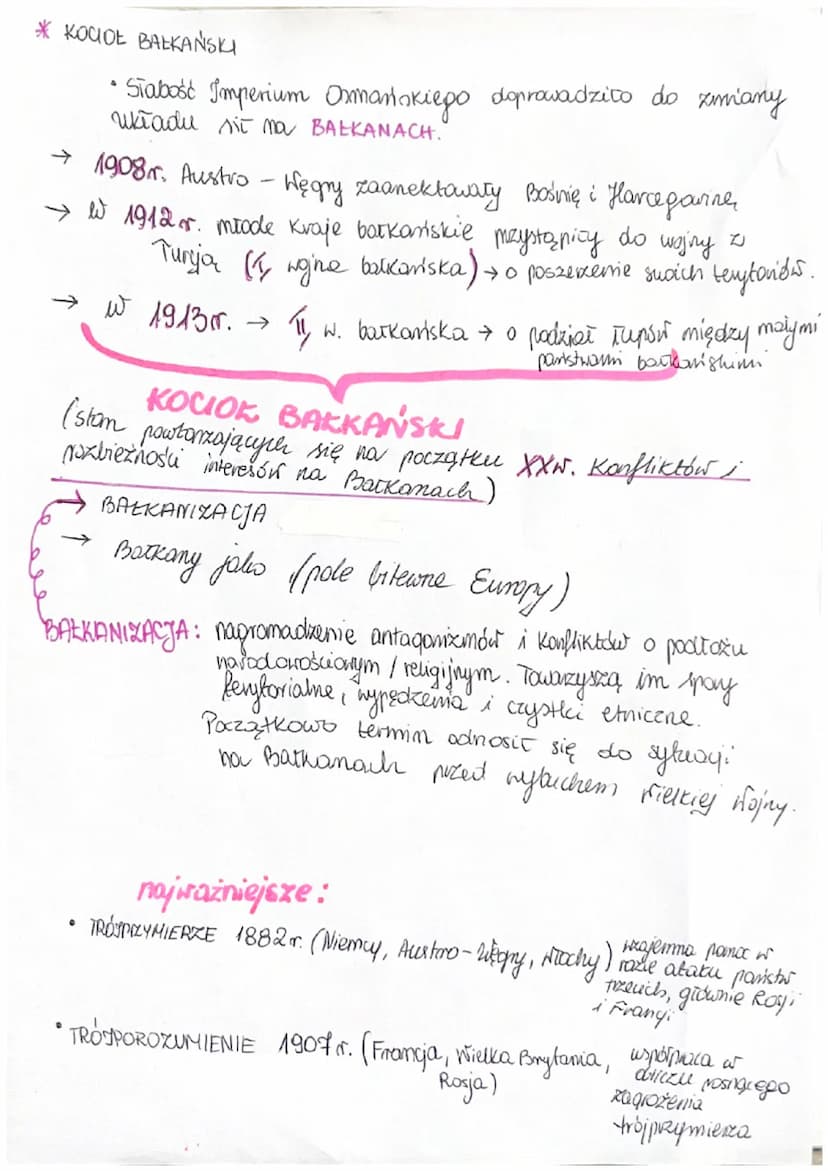 * KOCIOŁ BAŁKAŃSKI
• Słabość Imperium Osmańskiego doprowadziło do zmiany
układu sił na BAŁKANACH.
→ 1908r. Austro - Węgry zaanektowały Bośnię i Harcegowinę
→ W 1912r. młode kraje bałkańskie przystąpiły do wojny z
Turcją (I wojna bałkańska) → o poszerzenie swoich terytoriów.
→ W 1913r. → II w. bałkańska → o podział łupów między małymi
państwami bałkańskimi
KOCIOŁ BAŁKAŃSKI
(stan powtarzających się na początku XXw. Konfliktów i
rozbieżności interesów na Bałkanach)
→ BAŁKANIZACJA
→ Bałkany jako (pole bitewne Europy)
BAŁKANIZACJA: nagromadzenie antagonizmów i konfliktów o podłożu
narodowościowym / religijnym. Towarzyszą im spory
terytorialne, wypędzenia i czystki etniczne.
Początkowo termin odnosił się do sytuacji
na Bałkanach przed wybuchem Wielkiej Wojny.
najważniejsze:
• TRÓJPRZYMIERZE 1882r. (Niemcy, Austro-Węgry, Włochy) wzajemna pomoc w
razie ataku państw
trzecich, głównie Rosji
i Francji
• TRÓJPOROZUMIENIE 1907r. (Francja, Wielka Brytania, współpraca w
Rosja) obliczu rosnącego
zagrożenia
trójprzymierza